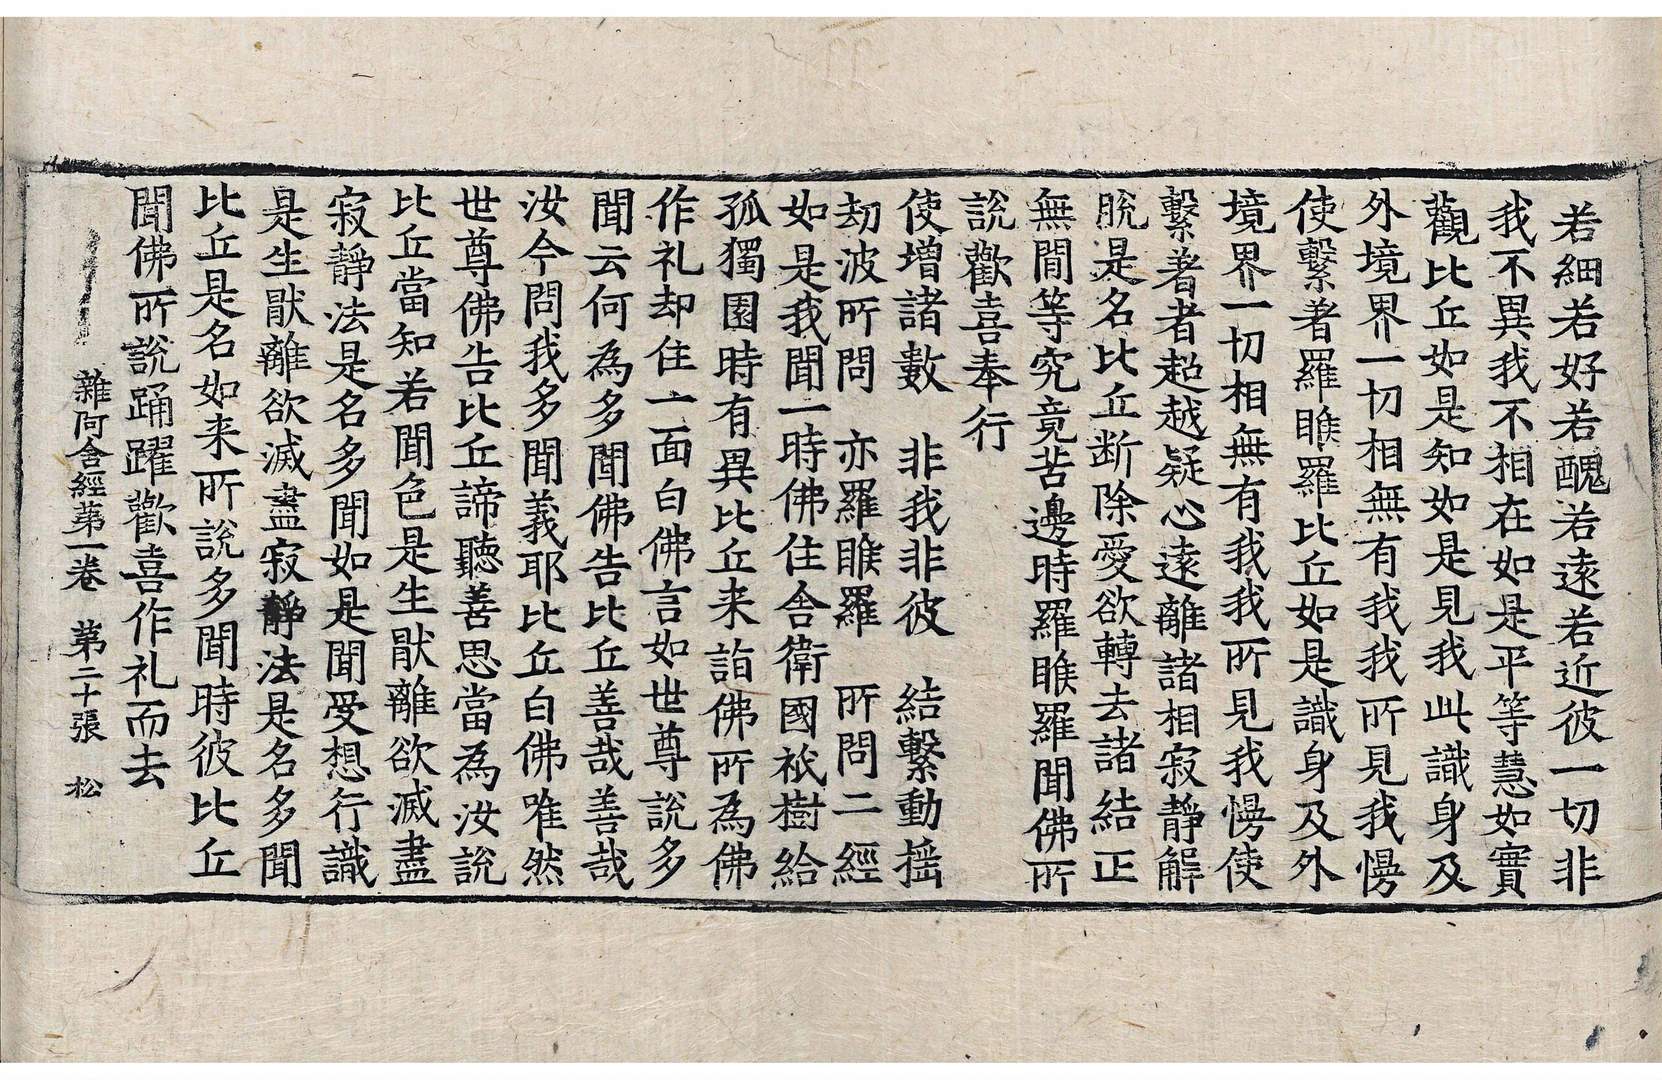 若細若好若醜若遠若近彼一切非
我不異我不相在如是平等慧如實
觀比丘如是知如是見我此識身及
外境界一切相無有我我所見我慢
使繫著羅睺羅比丘如是識身及外
境界一切相無有我我所見我慢使
繫著者超越疑心遠離諸相寂靜解
脫是名比丘断除愛欲轉去諸結正
無閒等究竟苦邊時羅睺羅聞佛所
說歡喜奉行
使增諸數 非我非彼 結繫動搖
劫波所問 亦羅睺羅 所問二經
如是我聞一時佛住舍衛國祇樹給
孤獨園時有異比丘来詣佛所為佛
作礼却住一面白佛言如世尊說多
聞云何為多聞佛告比丘善哉善哉
汝今問我多聞義耶比丘白佛唯然
世尊佛告比丘諦聽善思當為汝說
比丘當知若聞色是生猒離欲滅盡
寂靜法是名多聞如是聞受想行識
是生猒離欲滅盡寂靜法是名多聞
比丘是名如来所說多聞時彼比丘
聞佛所說踊躍歡喜作礼而去
雜阿含經第一卷 第二十張 松